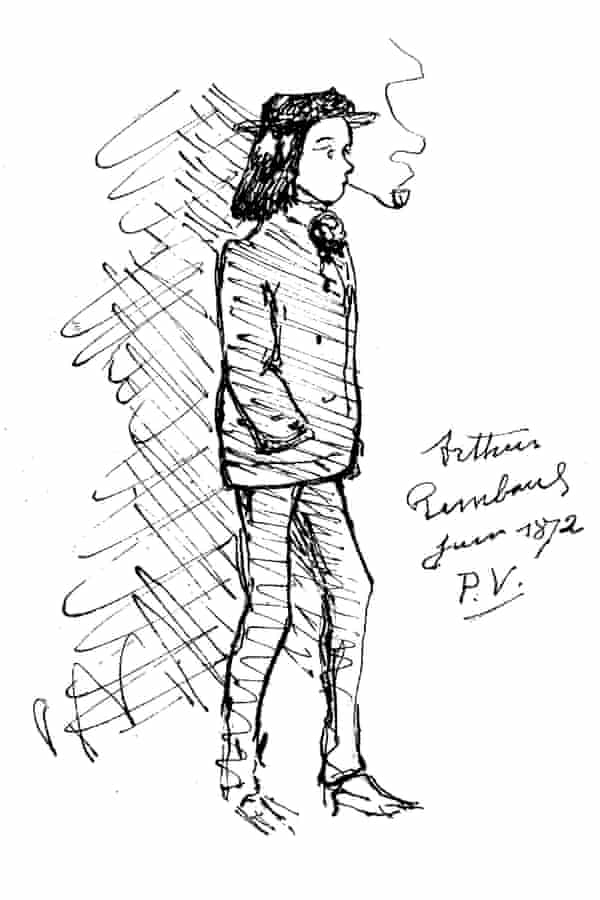 Arthur
Rimbaud
Juin 1872
P.V.